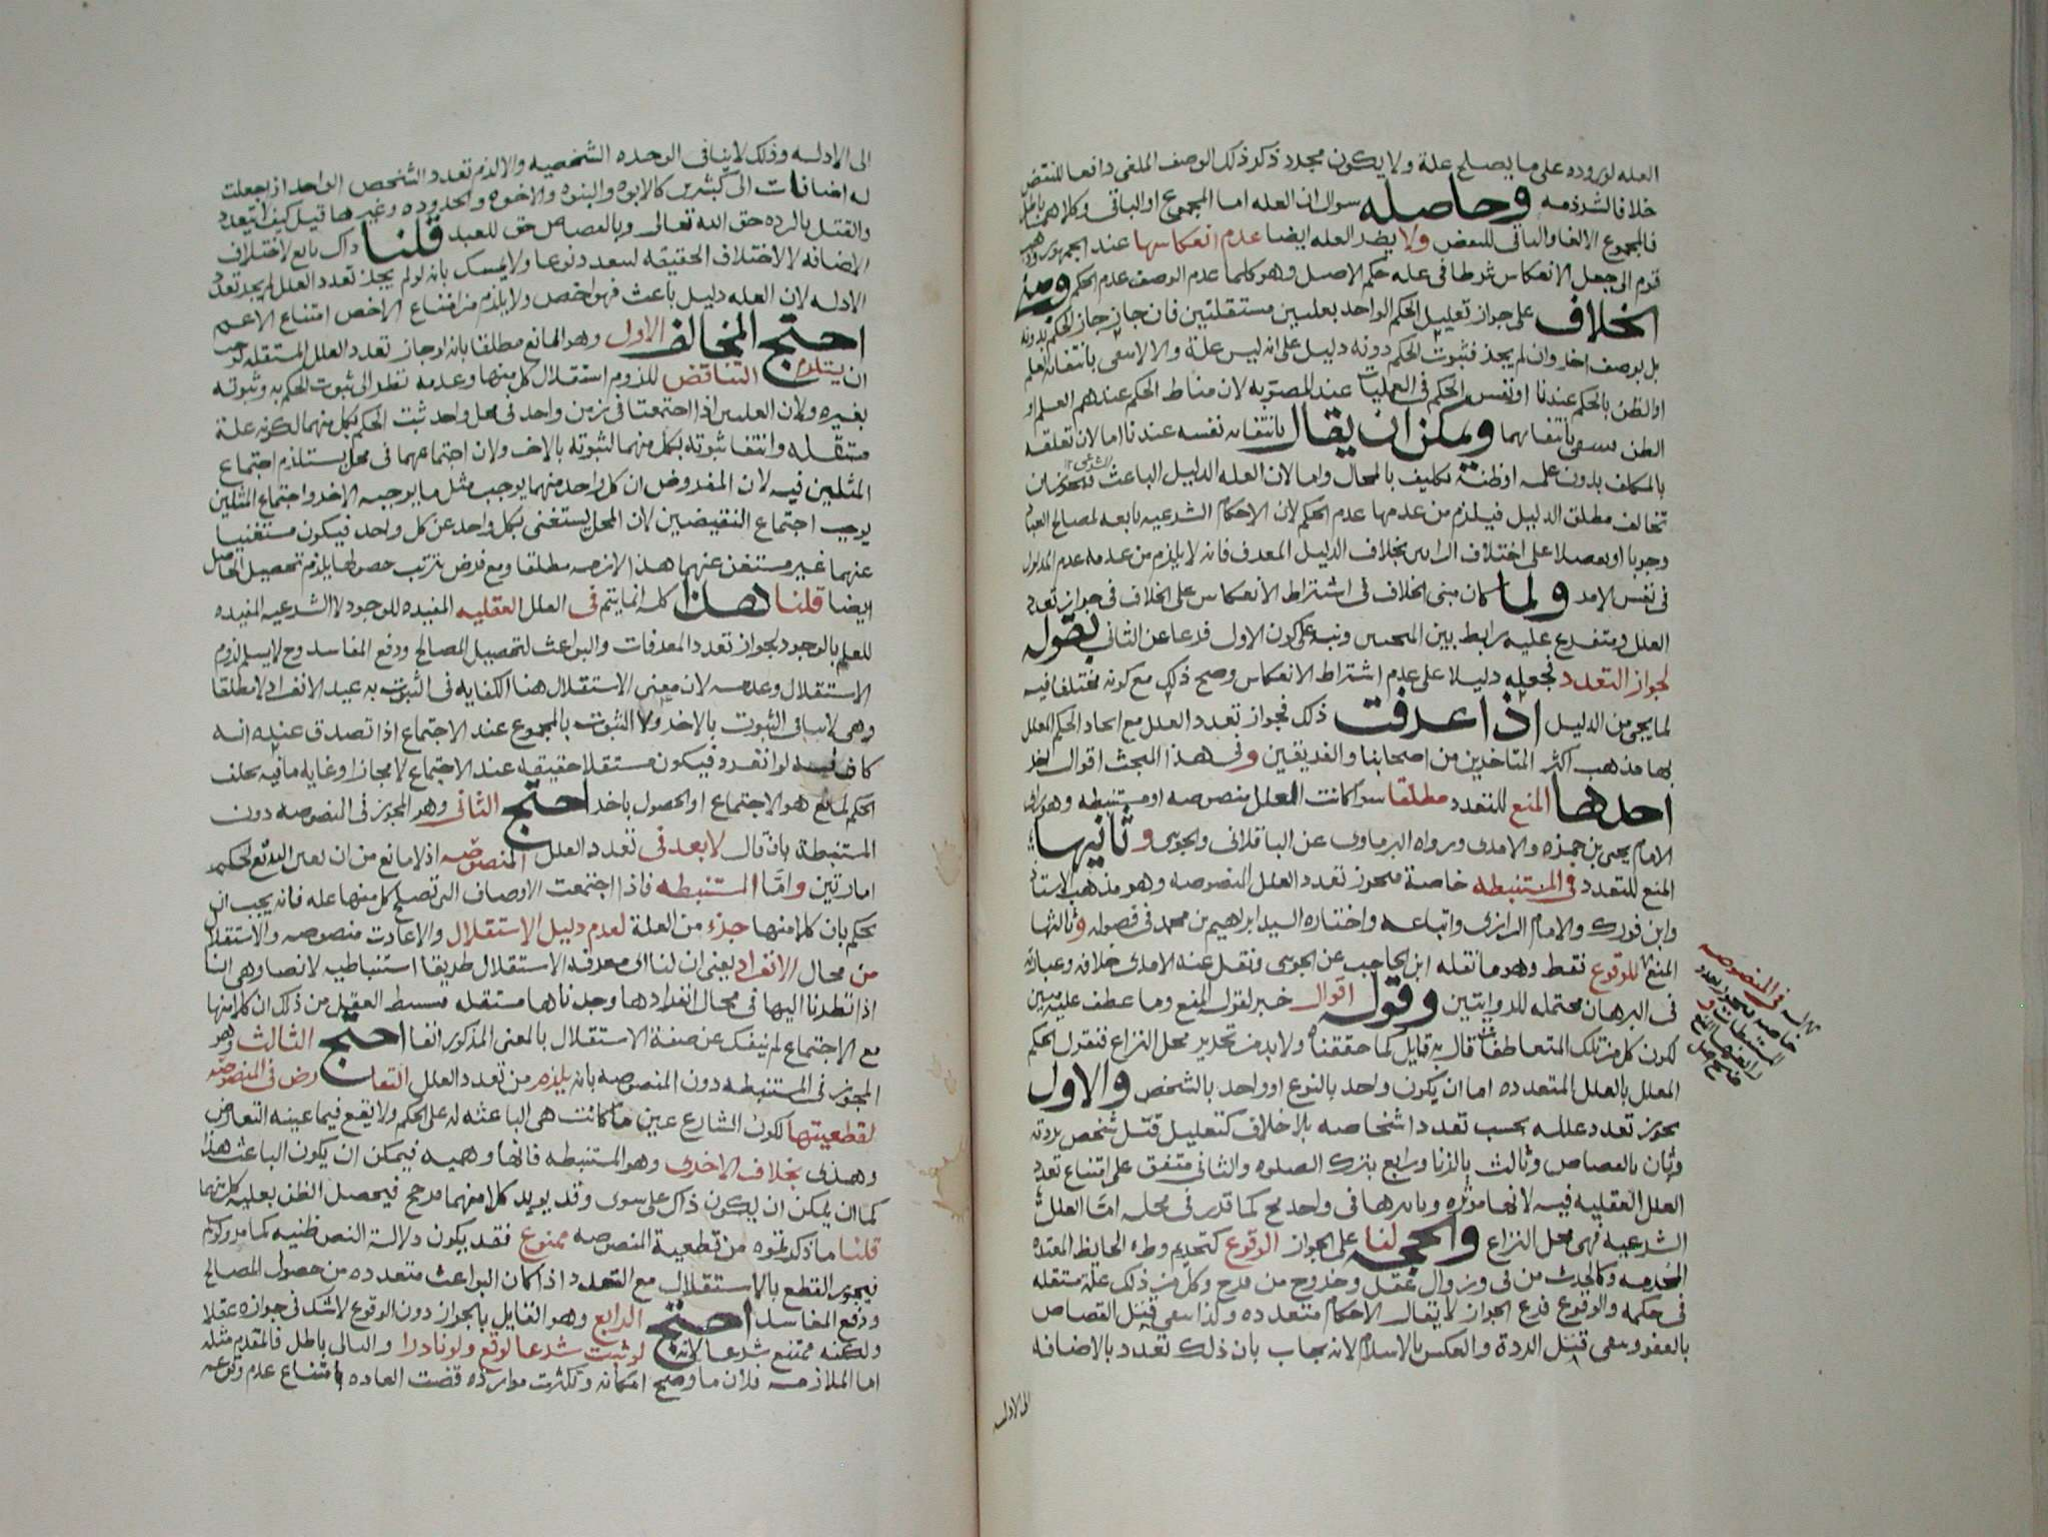 العله لوروده على ما يصلح علة ولا يكون مجرد ذكر ذلك الوصف الملغى دافعا للنقض
خلافا لشرذمه وحاصله سوال ان العله اما المجموع او الباقى وكلاهما باطل
فالمجموع الالغا والباقى للنقض ولا يضر العله ايضا عدم انعكاسها عند الجمهور وذهب
قوم الى جعل الانعكاس شرطا فى عله حكم الاصل وهو كلما عدم الوصف عدم الحكم ومبنى
الخلاف على جواز تعليل الحكم الواحد بعلتين مستقلتين فان جاز جاز الحكم بدونه
بل بوصف اخر وان لم يجز فثبوت الحكم دونه دليل على انه ليس علة والا لانتفى بانتفائه العلم
او الظن بالحكم عندنا او نفس الحكم فى العمليات عند المصوبه لان مناط الحكم عندهم العلم او
الظن فينتفى بانتفائهما ويمكن ان يقال بانتفائه نفسه عندنا اما لان تعلقه
بالمكلف بدون علمه او ظنه تكليف بالمحال واما لان العله الدليل الباعث الشرعى فيجوز ان
تخالف مطلق الدليل فيلزم من عدمها عدم الحكم لان الاحكام الشرعيه تابعه لمصالح العباد
وجوبا او تفضلا على اختلاف الرايين بخلاف الدليل المعرف فانه لا يلزم من عدمه عدم المدلول
فى نفس الامر ولما كان مبنى الخلاف فى اشتراط الانعكاس على الخلاف فى جواز تعدد
العلل ومتفرع عليه رابط بين المبحثين ونبه على كون الاول فرعا عن الثانى بقوله
لجواز التعدد فجعله دليلا على عدم اشتراط الانعكاس وصح ذلك مع كونه مختلفا فيه
لما يجى من الدليل اذا عرفت ذلك فجواز تعدد العلل مع اتحاد الحكم المعلل
بها مذهب اكثر المتاخرين من اصحابنا والفريقين وفى هذا المبحث اقوال اخر
احدها المنع للتعدد مطلقا سوا كانت العلل منصوصه او مستنبطه وهو راى
الامام يحيى بن حمزه والامدى ورواه البرماوى عن الباقلانى والجوينى وثانيها
المنع للتعدد فى المستنبطه خاصة فيجوز تعدد العلل المنصوصه وهو مذهب الاستاذ
وابن فورك والامام الرازى واتباعه واختاره السيد ابراهيم بن محمد فى فصوله وثالثها
المنع للوقوع فقط وهو ما نقله ابن الحاجب عن الجوينى ونقل عنه الامدى خلافه وعبارته
فى البرهان محتمله للروايتين وقوله اقوال خبر لقوله المنع وما عطف عليه مبين
لكون كل من تلك المتعاطفات قال به قايل كما حققناه ولا بد من تحرير محل النزاع فنقول الحكم
المعلل بالعلل المتعدده اما ان يكون واحد بالنوع او واحد بالشخص والاول
يجوز تعدد علله بحسب تعدد اشخاصه بلا خلاف كتعليل قتل شخص بردته
وثان بالقصاص وثالث بالزنا ورابع بترك الصلوه والثانى متفق على امتناع تعدد
العلل العقليه فيه لانها موثره وتاثيرها فى واحد مح كما قرر فى محله اما العلل
الشرعيه فهى محل النزاع والحجه لنا على الجواز الوقوع كتحريم وطء الحايض المعتده
المحرمه وكالحدث من قى وزوال عقل وخروج من فرج وكل من ذلك علة مستقله
فى حكمه والوقوع فرع الجواز لا يقال الاحكام متعدده ولذا ينتفى قتل القصاص
بالعفو ويبقى قتل الردة والعكس بالاسلام لانه يجاب بان ذلك تعدد بالاضافه
الى الادله
ثالثها فى المنصوصه
خاصه فيجوز تعدد
المستنبطات و
رابعها المنع
الى الادله وذلك لا ينافى الوحده الشخصيه والا لزم تعدد الشخص الواحد اذ جعلت
له اضافات الى كثيرين كالابوه والبنوه والاخوه والجدوده وغيرها قيل كيف لا يتعدد
والقتل بالرده حق الله تعالى وبالقصاص حق للعبد قلنا ذاك تابع لاختلاف
الاضافه لا لاختلاف الحقيقه لتتعدد نوعا ولا يتمسك بانه لو لم يجز تعدد العلل لم يجز تعدد
الادله لان العله دليل باعث فهو اخص ولا يلزم من امتناع الاخص امتناع الاعم
احتج المخالف الاول وهو المانع مطلقا بانه لو جاز تعدد العلل المستقله لوجب
ان يستلزم التناقض للزوم استقلال كل منها وعدمه نظرا الى ثبوت الحكم به وثبوته
بغيره ولان العلتين اذا اجتمعتا فى زمن واحد فى محل واحد ثبت الحكم بكل منهما لكونه علة
مستقله وانتفا ثبوته بكل منهما لثبوته بالاخر ولان اجتماعهما فى محل يستلزم اجتماع
المثلين فيه لان المفروض ان كل واحد منهما يوجب مثل ما يوجبه الاخر واجتماع المثلين
يوجب اجتماع النقيضين لان المحل يستغنى بكل واحد عن كل واحد فيكون مستغنيا
عنهما غير مستغن عنهما هذا لازمه مطلقا ومع فرض ترتب حصولها يلزم تحصيل الحاصل
ايضا قلنا هذا كله انما يتم فى العلل العقليه المفيده للوجود لا الشرعيه المفيده
للعلم بالوجود لجواز تعدد المعرفات والبواعث لتحصيل المصالح ودفع المفاسد وح لا يسلم لزوم
الاستقلال وعدمه لان معنى الاستقلال هنا الكفايه فى الثبوت به عند الانفراد لا مطلقا
وهى لا تنافى الثبوت بالاخر ولا الثبوت بالمجموع عند الاجتماع اذا تصدق عنده انه
كاف فيه لو انفرد فيكون مستقلا حقيقه عند الاجتماع لا مجازا وغايه ما فيه تخلف
الحكم لمانع هو الاجتماع او الحصول باخر احتج الثانى وهو المجوز فى المنصوصه دون
المستنبطة بان قال لا بعد فى تعدد العلل المنصوصه اذ لا مانع من ان يعين الله تع لحكم
امارتين واما المستنبطه فاذا اجتمعت الاوصاف التى تصلح كل منها عله فانه يجب ان
يحكم بان كلا منها جزء من العلة لعدم دليل الاستقلال والا عادت منصوصه والاستقلال
من محال الانفراد يعنى ان لنا الى معرفة الاستقلال طريقا استنباطيه لا نصا وهى انا
اذا نظرنا اليها فى محال انفرادها وجدناها مستقله فيستنبط العقل من ذلك ان كلا منها
مع الاجتماع لم ينفك عن صفة الاستقلال بالمعنى المذكور انفا احتج الثالث وهو
المجوز فى المستنبطه دون المنصوصه بانه يلزم من تعدد العلل التعارض فى المنصوصه
لقطعيتها لكون الشارع عين ما كانت هى الباعثه له على الحكم ولا يقع فيما عينه التعارض
وهذى بخلاف الاخرى وهو المستنبطه فانها وهميه فيمكن ان يكون الباعث هذا
كما ان يمكن ان يكون ذاك على سوى وقد يويد كلا منهما مرجح فيحصل الظن بعليه كل منهما
قلنا ما ذكرتموه من قطعية المنصوصه ممنوع فقد يكون دلالة النص ظنيه كما مر ولو سلم
فيجوز القطع بالاستقلال مع التعدد اذا كان البواعث متعدده من حصول المصالح
ودفع المفاسد احتج الرابع وهو القايل بالجواز دون الوقوع لا شك فى جوازه عقلا
ولكنه ممتنع شرعا لانه لو ثبت شرعا لوقع ولو نادرا والتالى باطل فالمقدم مثله
اما الملازمه فلان ما وضح امكانه وتكثرت موارده قضت العاده بامتناع عدم وقوعه